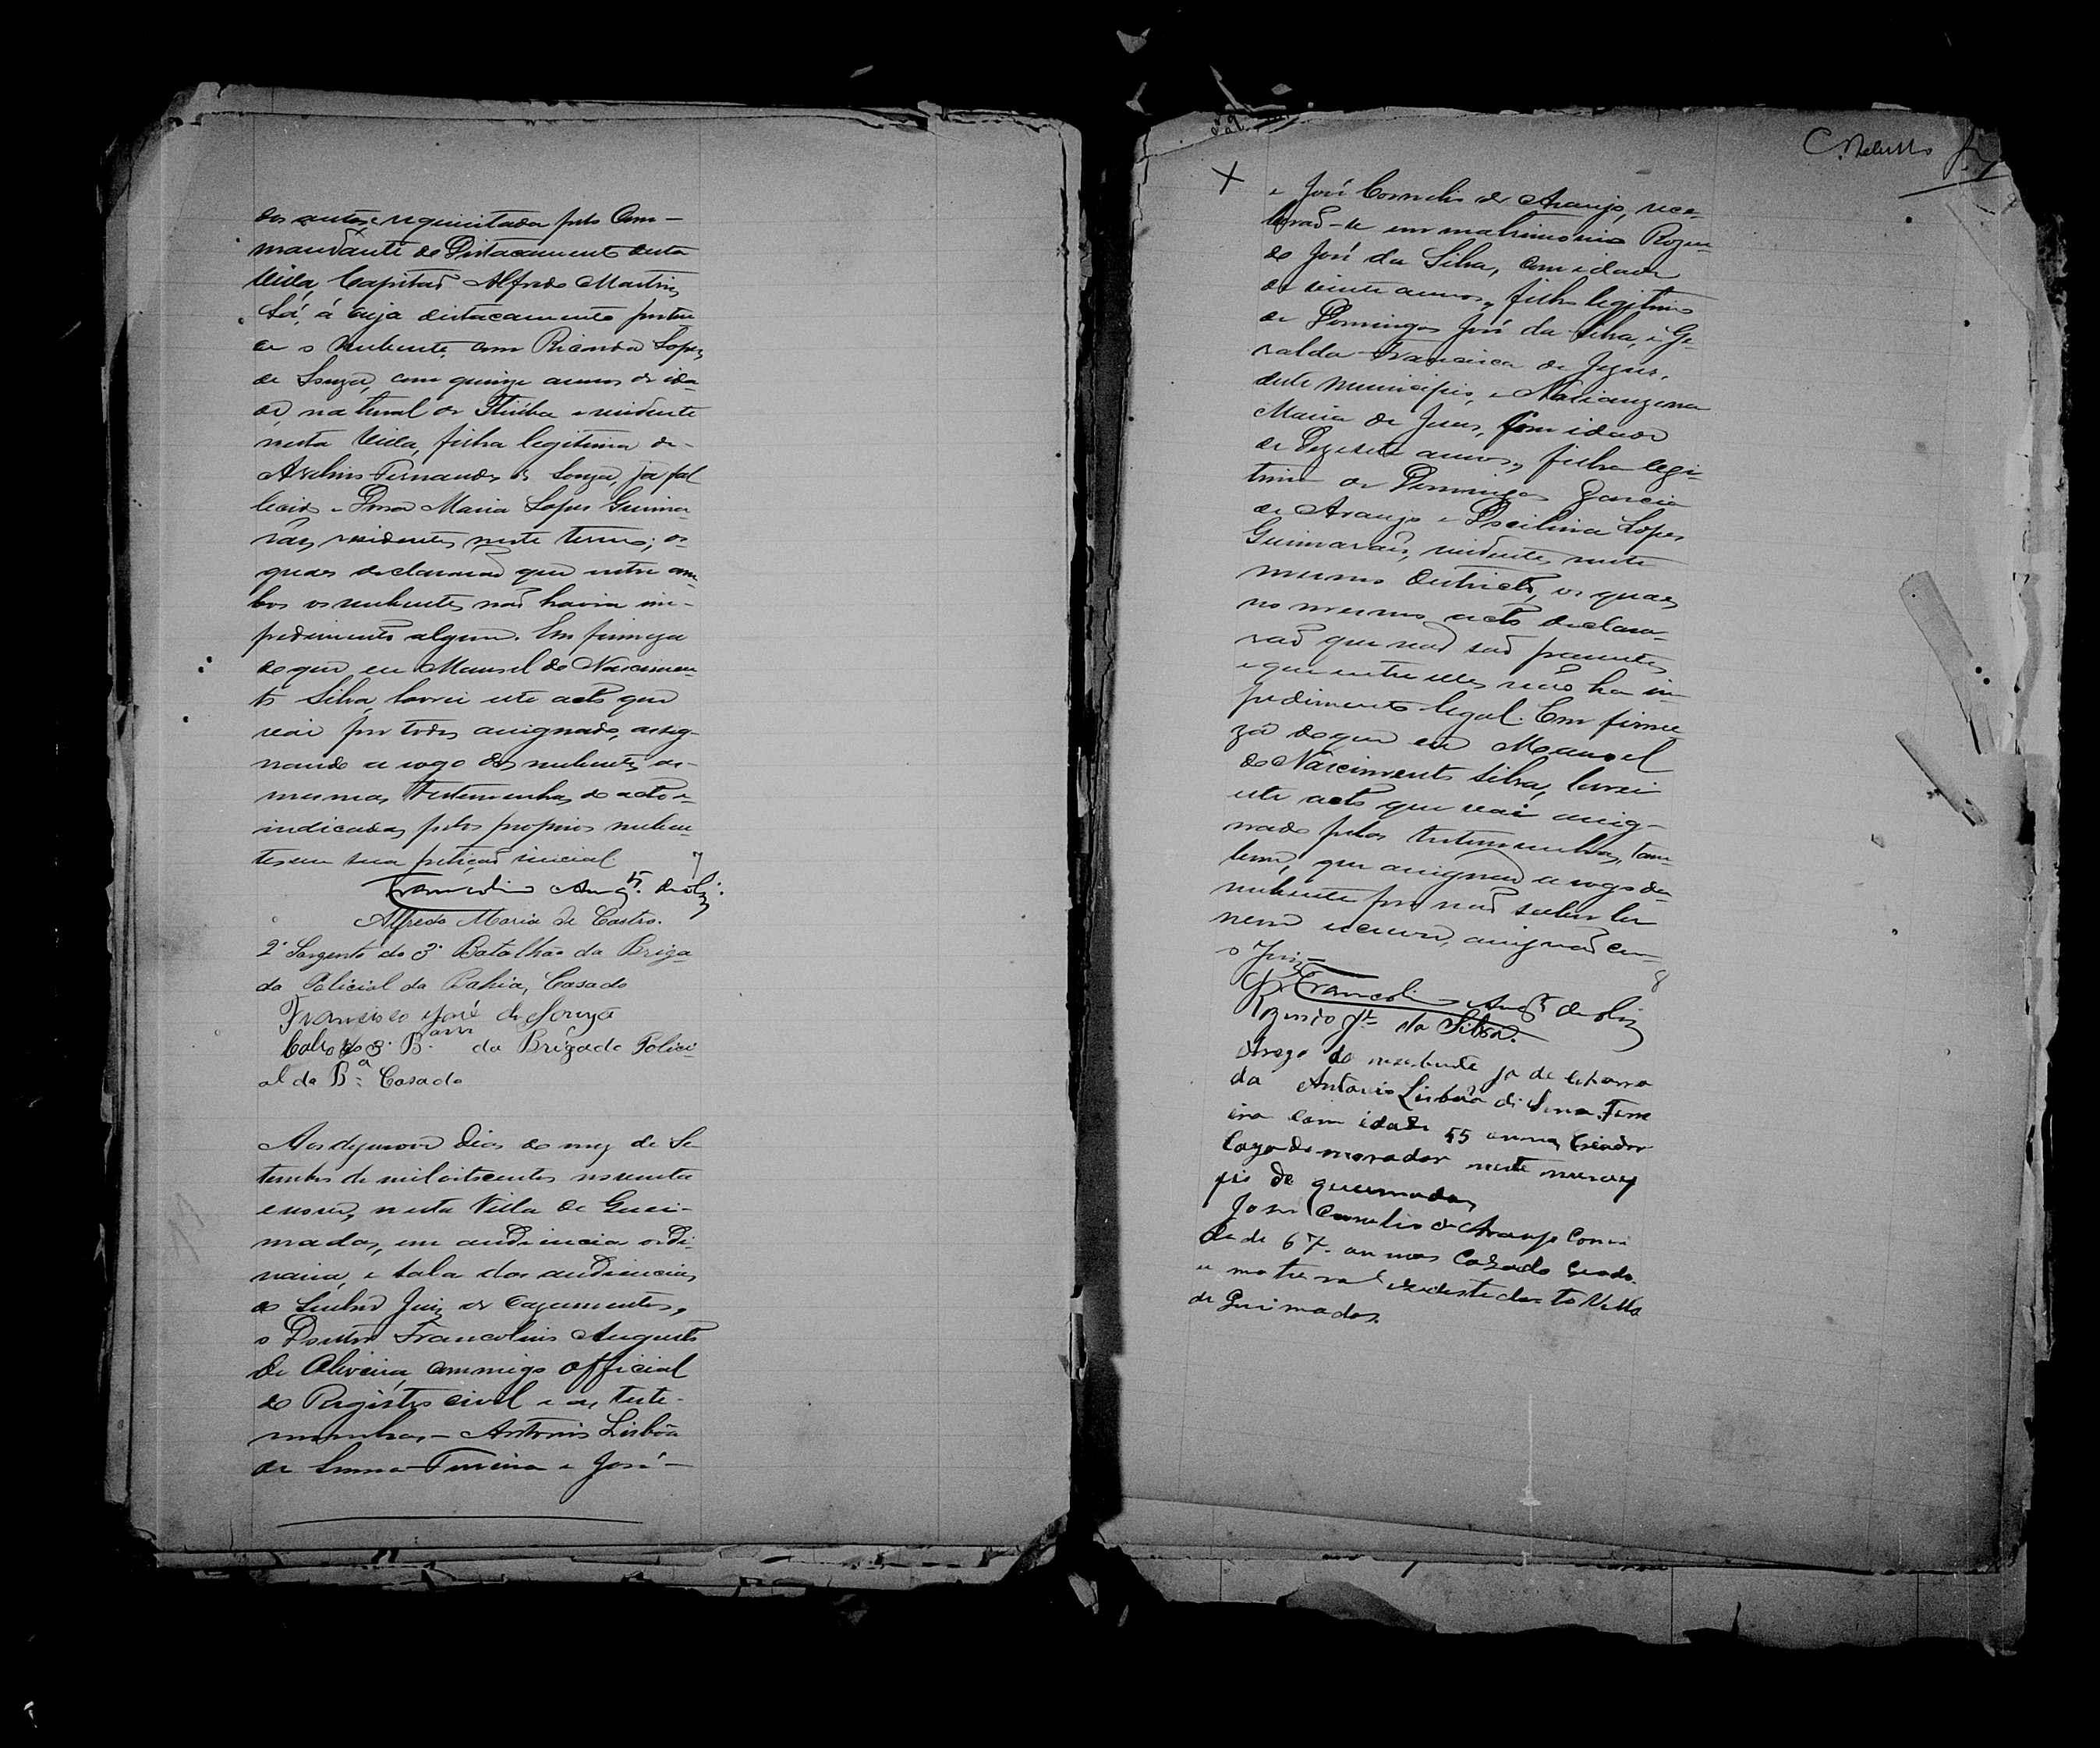 dos autos, requisitada pelo Com-
mandante do Distacamento desta
Villa, Capitaõ Alfredo Martins
Sá, á cujo distacamento perten
ce o nubente, com Ricarda Lopes
de Souza, com quinze annos de ida
de, natural de Itiúba e residente
nesta Villa, filha legitima de
Fernandes de Souza, ja fal
lecido e Dona Maria Lopes Guima-
rães, residentes neste termo; os
quaes declararaõ que entre am-
bos os nubentes naõ havia im-
pedimento algum. Em firmeza
do que eu Manoel do Nascimen
to Silva, lavrei este acto que
vai por todos assignado, assig-
nando a rogo dos nubentes as
mesmas testemunhas do acto e
indicadas pelos proprios nuben-
tes em sua petiçaõ inicial.
7
Francolino Aug.to de Oliv.
Alfredo Maria de Castro.
2º Sargento do 3º Batalhão da Briga
da Policial da Bahia, Casado
Francisco José de Souza
Cabo do 3º B.am da Brigada Polici-
al da B.a Casado
Aos dezenove dias do mez de Se-
tembro de mil oitocentos noventa
e nove, nesta Villa de Quei-
madas, em audiencia ordi-
naria, e sala das audiencias
do Senhor Juiz de Cazamentos,
o Doutor Francolino Augusto
de Oliveira, commigo Official
do Registro civil e as teste-
munhas - Antonio Lisbôa
de Senna Ferreira e José -
C. Rebello
X
e José Cornelio de Araujo, rece-
beraõ-se em matrimonio Rozen
do José da Silva, com idade
de vinte annos, filho legitimo
de Domingos José da Silva, e Ge-
ralda Francisca de Jezus,
deste municipio, e
Maria de Jesus, com idade
de dezesete annos, filha legi-
tima de Domingos Garcia
de Araujo e Lopes
Guimarães, residentes neste
mesmo Districto, os quaes
no mesmo acto declara-
raõ que naõ saõ parentes
e que entre elles não ha im
pedimento legal. Em firme
za do que eu Manoel
do Nascimento Silva, lavrei
este acto que vai assig-
nado pelas testemunhas, tam
bem, que assignaõ a rogo da
nubente por naõ saber ler
nem escrever, assignaõ com
o Juiz -
8
Francolino Aug.to de Oliv
Rozendo J.e da Silva.
Arogo da nubente ja de clarra
da Antonio Lisbôa di Sena Ferre
ira com idade 55 annos Criador
Cazado morador neste municy
pio de queimadas
Jose Cornelio de Araujo Com i
da de 67 annos Cazado Criado
e natural rezidente desta Villa
de Queimadas.